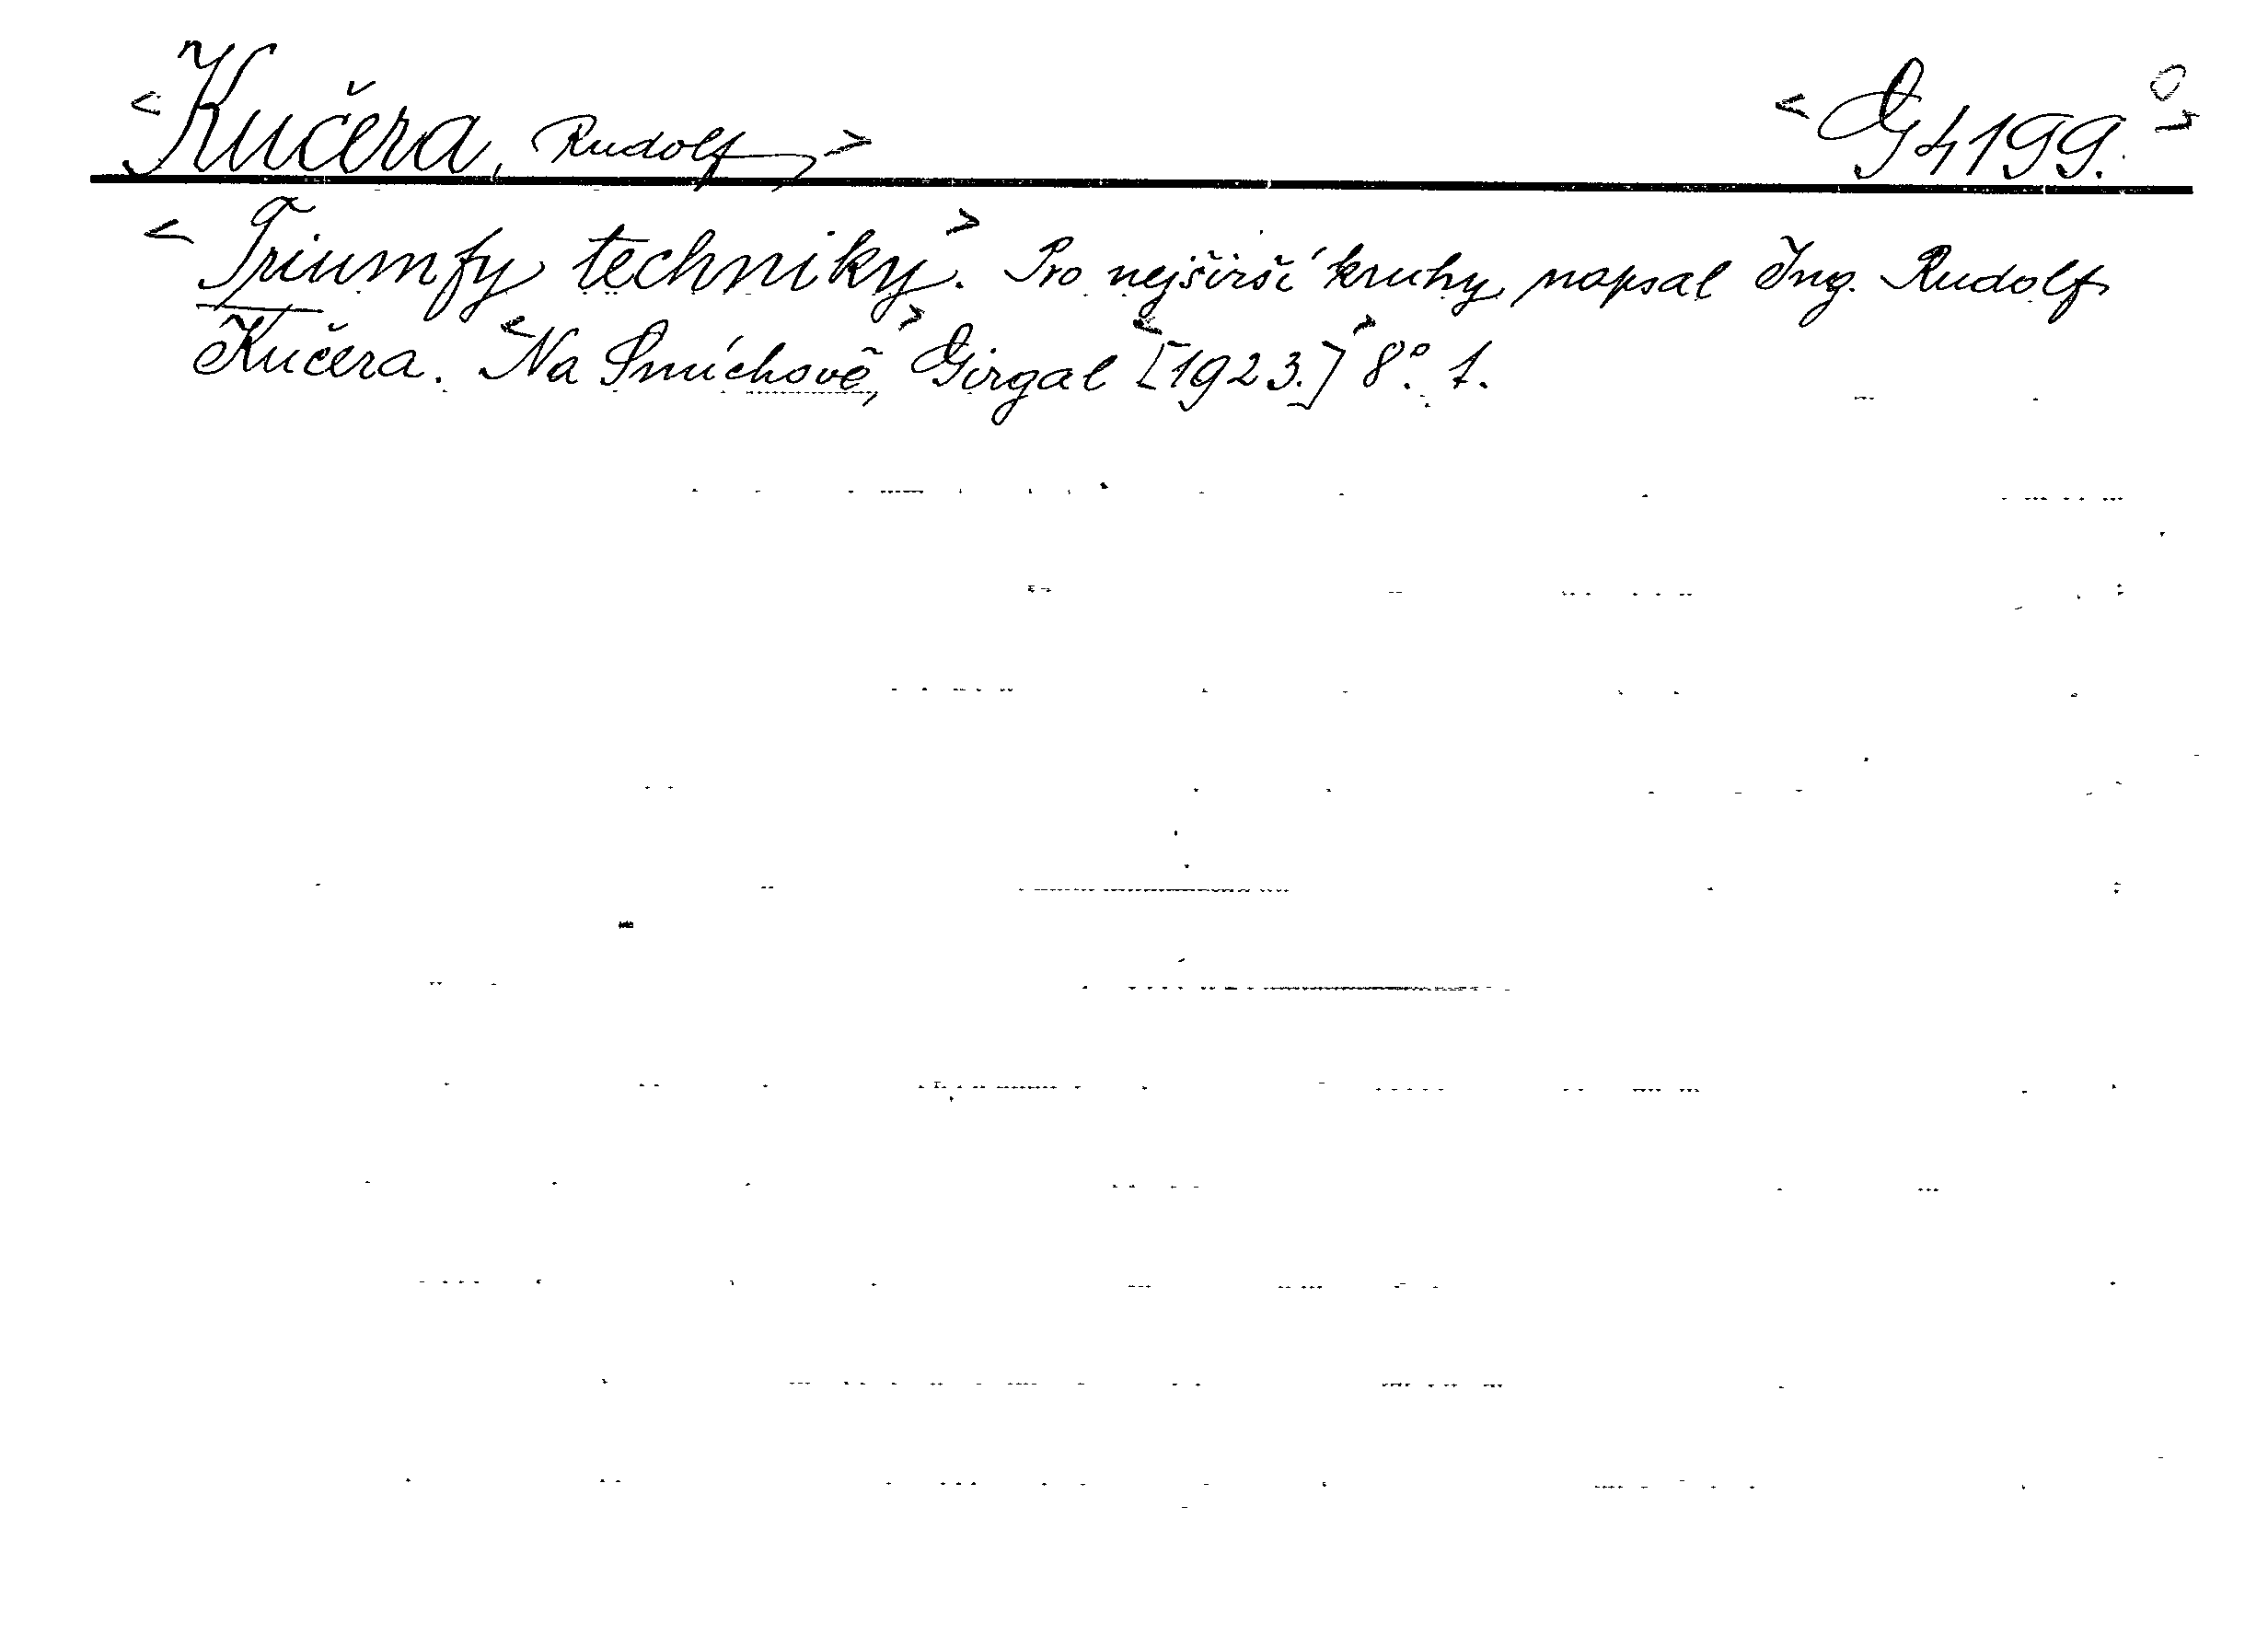 <Kučera, Rudolf> <G 4199.>
<Triumfy techniky>. Pro nejširší kruhy napsal Ing. Rudolf
Kučera. <Na Smíchově,> Girgal <[1923.]> 8°. 1.